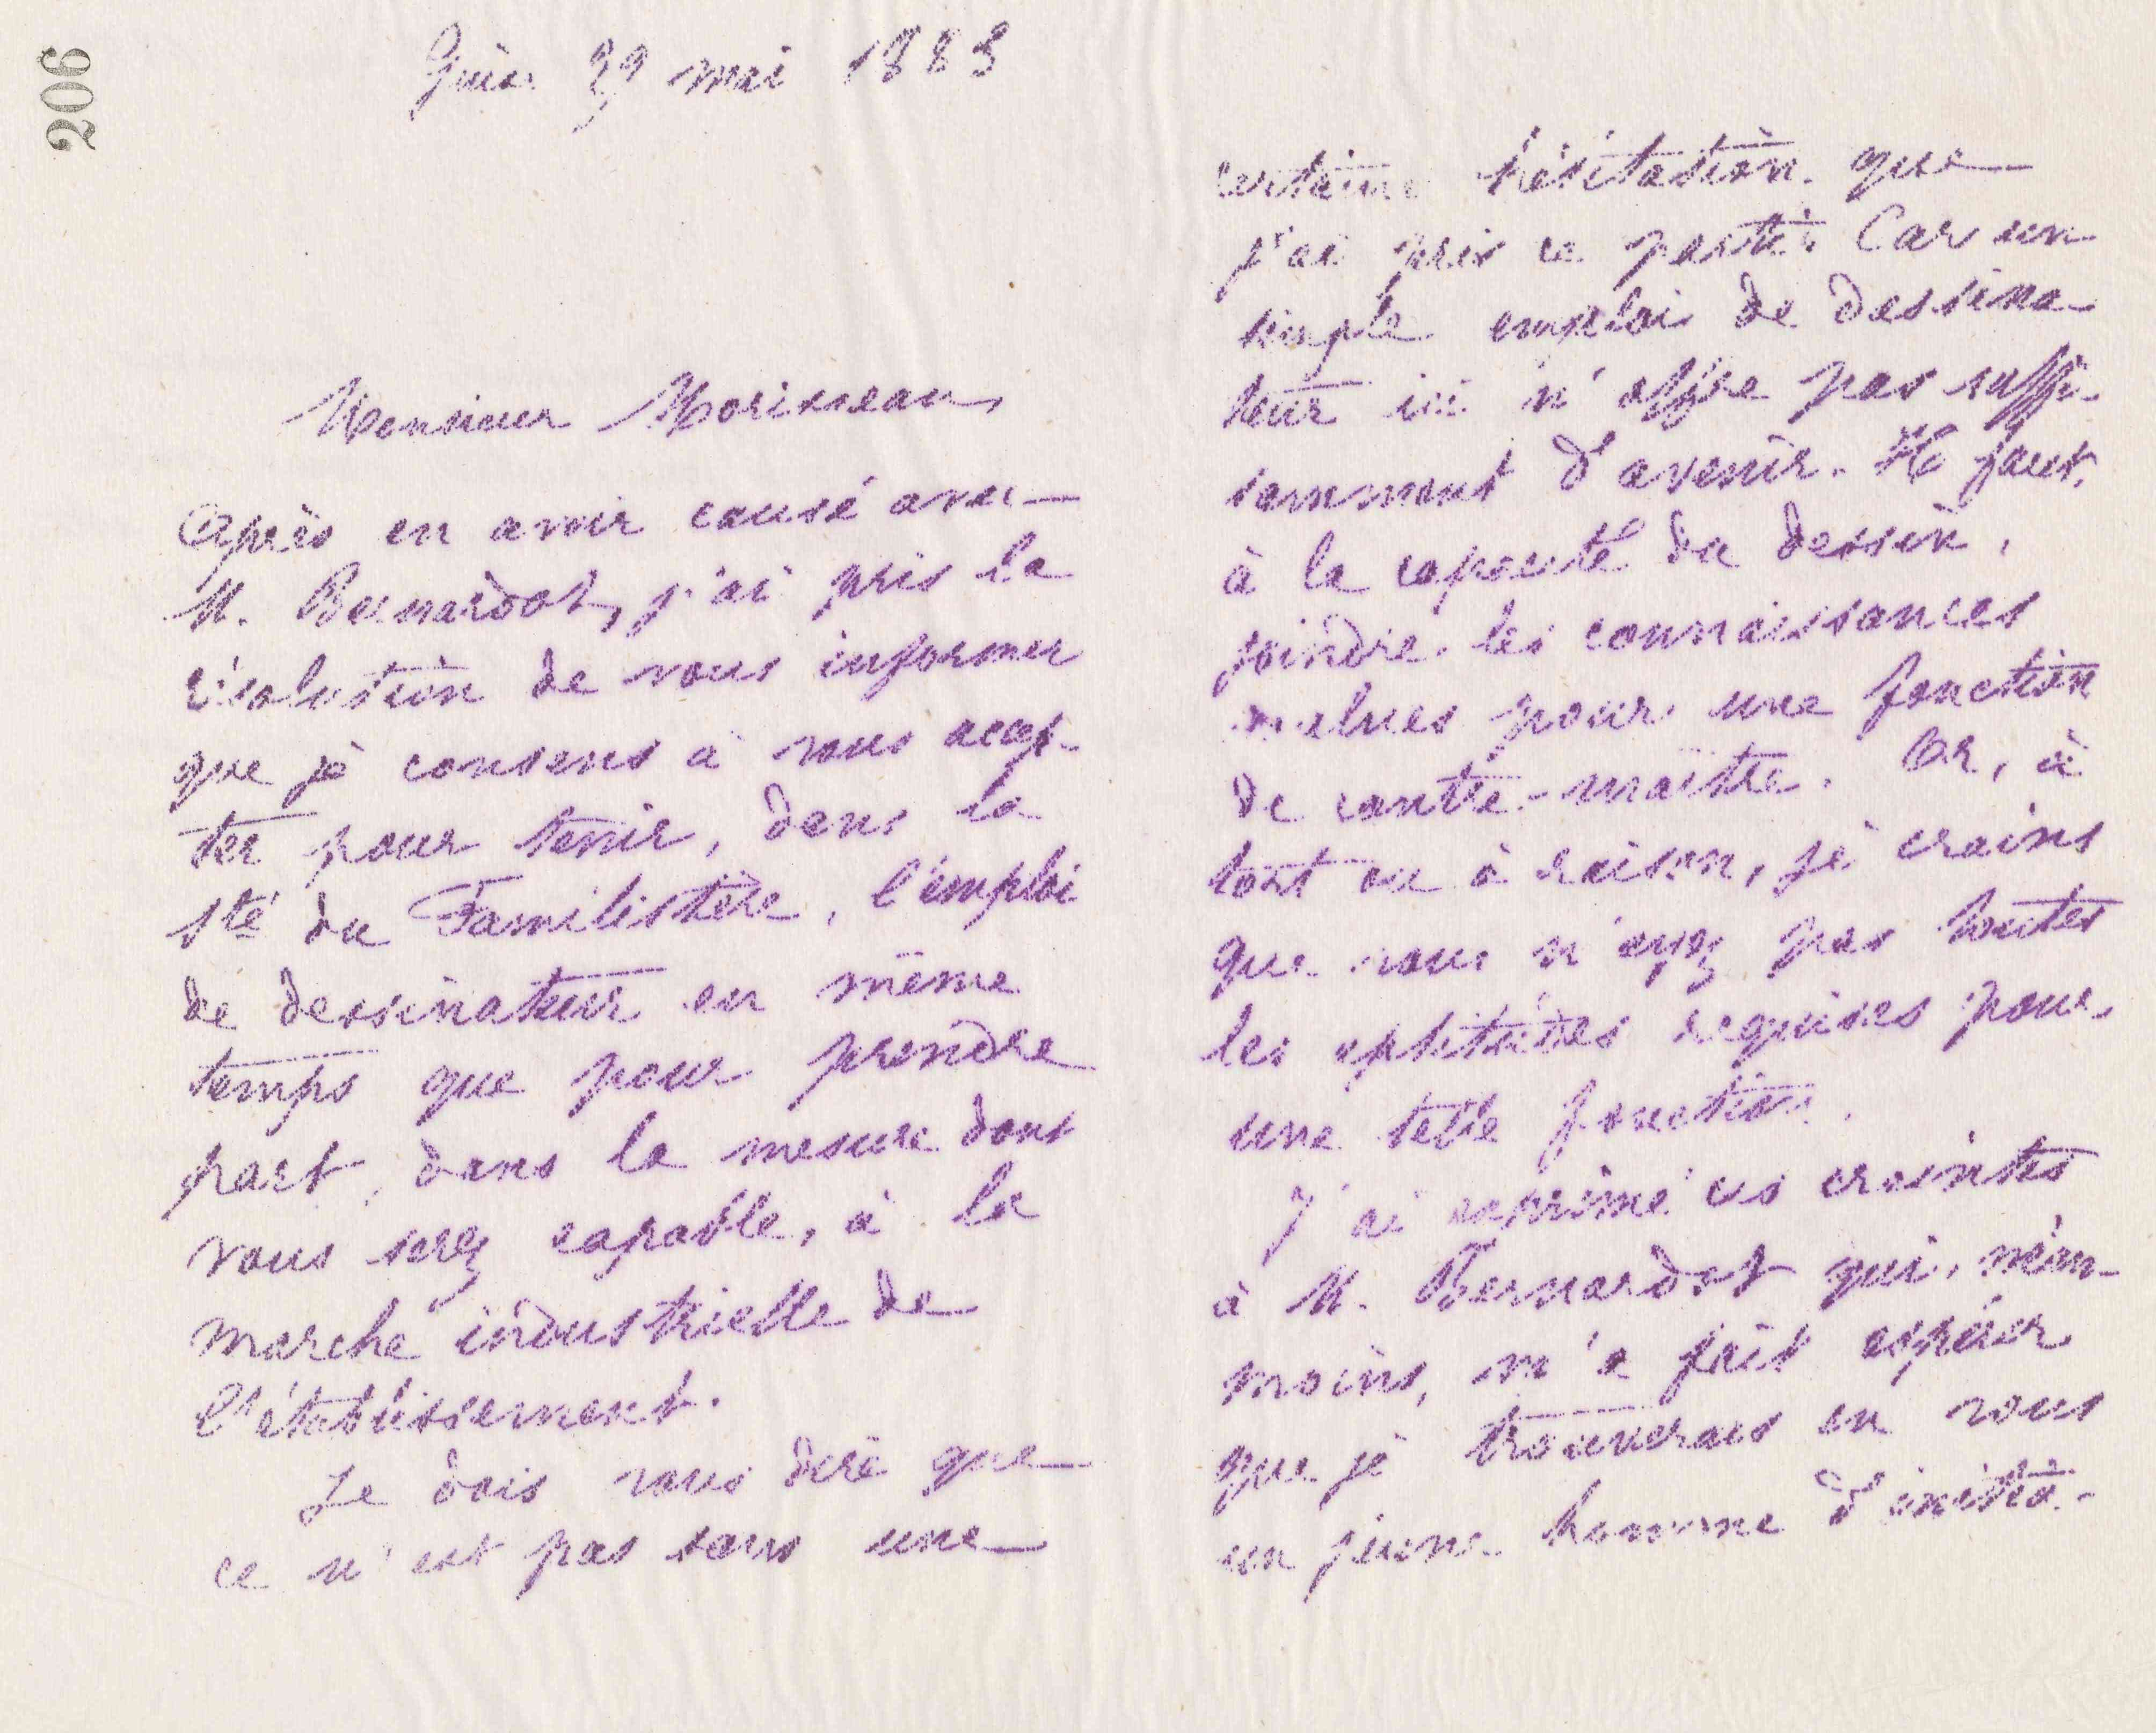 206
Guise 29 mai 1883
Monsieur Morisseau,
Après en avoir causé avec
M. Bernardot, j'ai pris la
résolution de vous informer
que je consens à vous accep-
ter pour tenir, dans la
Sté du Familistère, l'emploi
de dessinateur en même
temps que pour prendre
part, dans la mesure dont
vous serez capable, à la
marche industrielle de
l'établissement.
Je dois vous dire que
ce n'est pas sans une
certaine hésitation que
j'ai pris ce parti. Car un
simple emploi de dessina-
teur ici n'offre pas suffi-
samment d'avenir. Il faut,
à la capacité du dessin,
joindre les connaissances
voulues pour une fonction
de contre-maître. Or, à
tort ou à raison, je crains
que vous n'ayez pas toutes
les aptitudes requises pour
une telle fonction.
J'ai exprimé ces craintes
à M. Bernardot qui, néan-
moins, m'a fait espérer
que je trouverais en vous
un jeune homme d'initia-